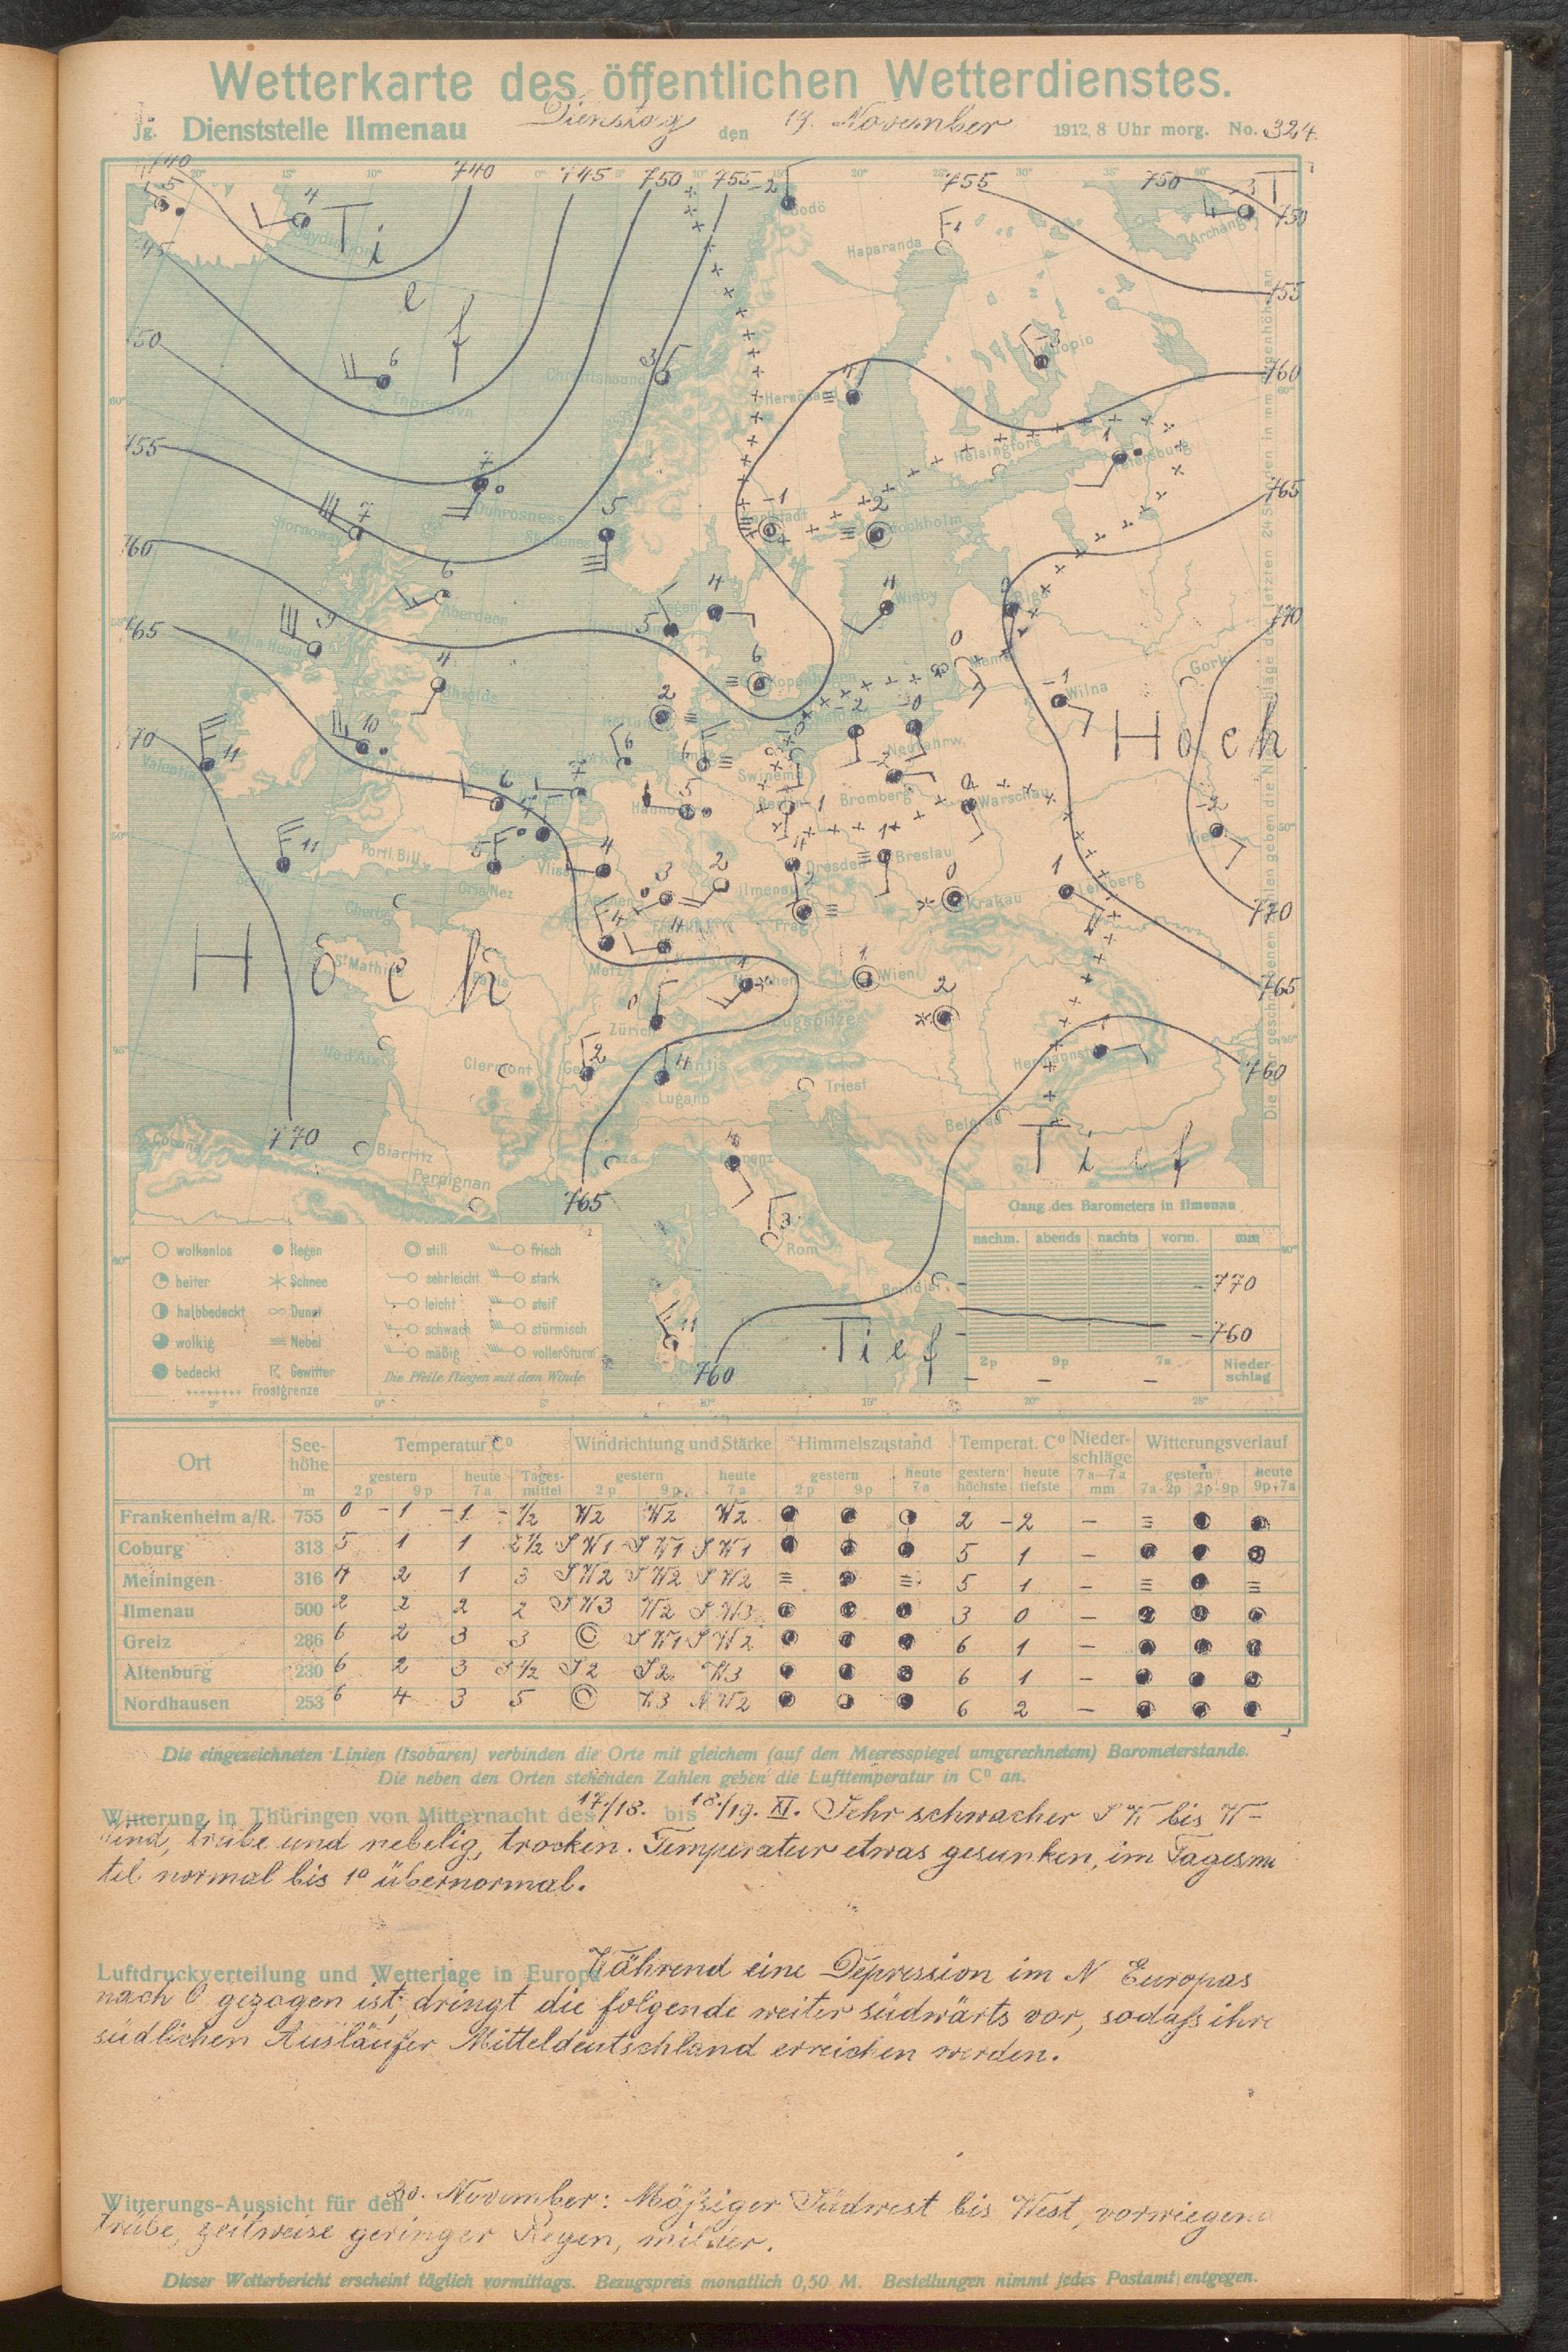 Wetterkarte des öffentlichen Wetterdienstes.
Jg. Dienststelle Ilmenau Dienstag den 19. November 1912, 8 Uhr morg. No. 324.
740 740 745 750 755 755 750
Bodö
Haparanda
Archang
Tief
Thorshavn
Christiansund
Kuopio
Hernösand
Helsingfors
Petersburg
Stornoway
Dunrossness
Skudenes
Karlstadt
Stockholm
Aberdeen
Wisby
Riga
Malin Head
Shields
Kopenhagen
Memel
Wilna
Gorki
Hoch
Valentia
Neufahrw.
Swinem
Hannover
Berlin
Bromberg
Warschau
Portl. Bill.
Scilly
Gris Nez
Vliss
Ilmenau
Dresden
Breslau
Kiew
Cherbg
Aachen
Prag
Krakau
Lemberg
Hoch
St Mathieu
Paris
Metz
München
Wien
Zürich
Zugspitze
Ile d'Aix
Clermont
Säntis
Lugano
Triest
Hermannst
Belgrad
Coruña
Biarritz
Perpignan
Nizza
Florenz
Tief
Rom
Brindisi
Tief
755 760 765 770 770 765 760
770 765 760
Die eingeschriebenen Zahlen geben die Niederschläge der letzten 24 Stunden in mm Regenhöhe an
wolkenlos Regen still frisch
heiter Schnee sehr leicht stark
halbbedeckt Dunst leicht steif
wolkig Nebel schwach stürmisch
bedeckt Gewitter mäßig voller Sturm
Frostgrenze Die Pfeile fliegen mit dem Winde
Gang des Barometers in Ilmenau
nachm. abends nachts vorm. mm
770
760
2p 9p 7a Nieder-
schlag
Ort See-höhe m Temperatur C° Windrichtung und Stärke Himmelszustand Temperat. C° Nieder-schläge 7a—7a mm Witterungsverlauf
gestern heute Tages-mittel gestern heute gestern heute gestern höchste heute tiefste gestern heute
2p 9p 7a 2p 9p 7a 2p 9p 7a 7a-2p 2p-9p 9p-7a
Frankenheim a/R. 755 0 -1 -1 -½ W2 W2 W2 2 -2 –
Coburg 313 5 1 1 2½ SW1 SW1 SW1 5 1 –
Meiningen 316 4 2 1 3 SW2 SW2 SW2 5 1 –
Ilmenau 500 2 2 2 2 SW3 W2 SW3 3 0 –
Greiz 286 6 2 3 3 SW1 SW2 6 1 –
Altenburg 230 6 2 3 3½ S2 S2 W3 6 1 –
Nordhausen 253 6 4 3 5 W3 NW2 6 2 –
Die eingezeichneten Linien (Isobaren) verbinden die Orte mit gleichem (auf den Meeresspiegel umgerechnetem) Barometerstande.
Die neben den Orten stehenden Zahlen geben die Lufttemperatur in C° an.
Witterung in Thüringen von Mitternacht des 17./18. bis 18./19. XI. Sehr schwacher SW bis W-
wind, trübe und nebelig, trocken. Temperatur etwas gesunken, im Tagesmi
tel normal bis 1° übernormal.
Luftdruckverteilung und Wetterlage in Europa Während eine Depression im N Europas
nach O gezogen ist, dringt die folgende weiter südwärts vor, sodaß ihre
südlichen Ausläufer Mitteldeutschland erreichen werden.
Witterungs-Aussicht für den 20. November: Mäßiger Südwest bis West, vorwiegend
trübe, zeitweise geringer Regen, milder.
Dieser Wetterbericht erscheint täglich vormittags. Bezugspreis monatlich 0,50 M. Bestellungen nimmt jedes Postamt entgegen.